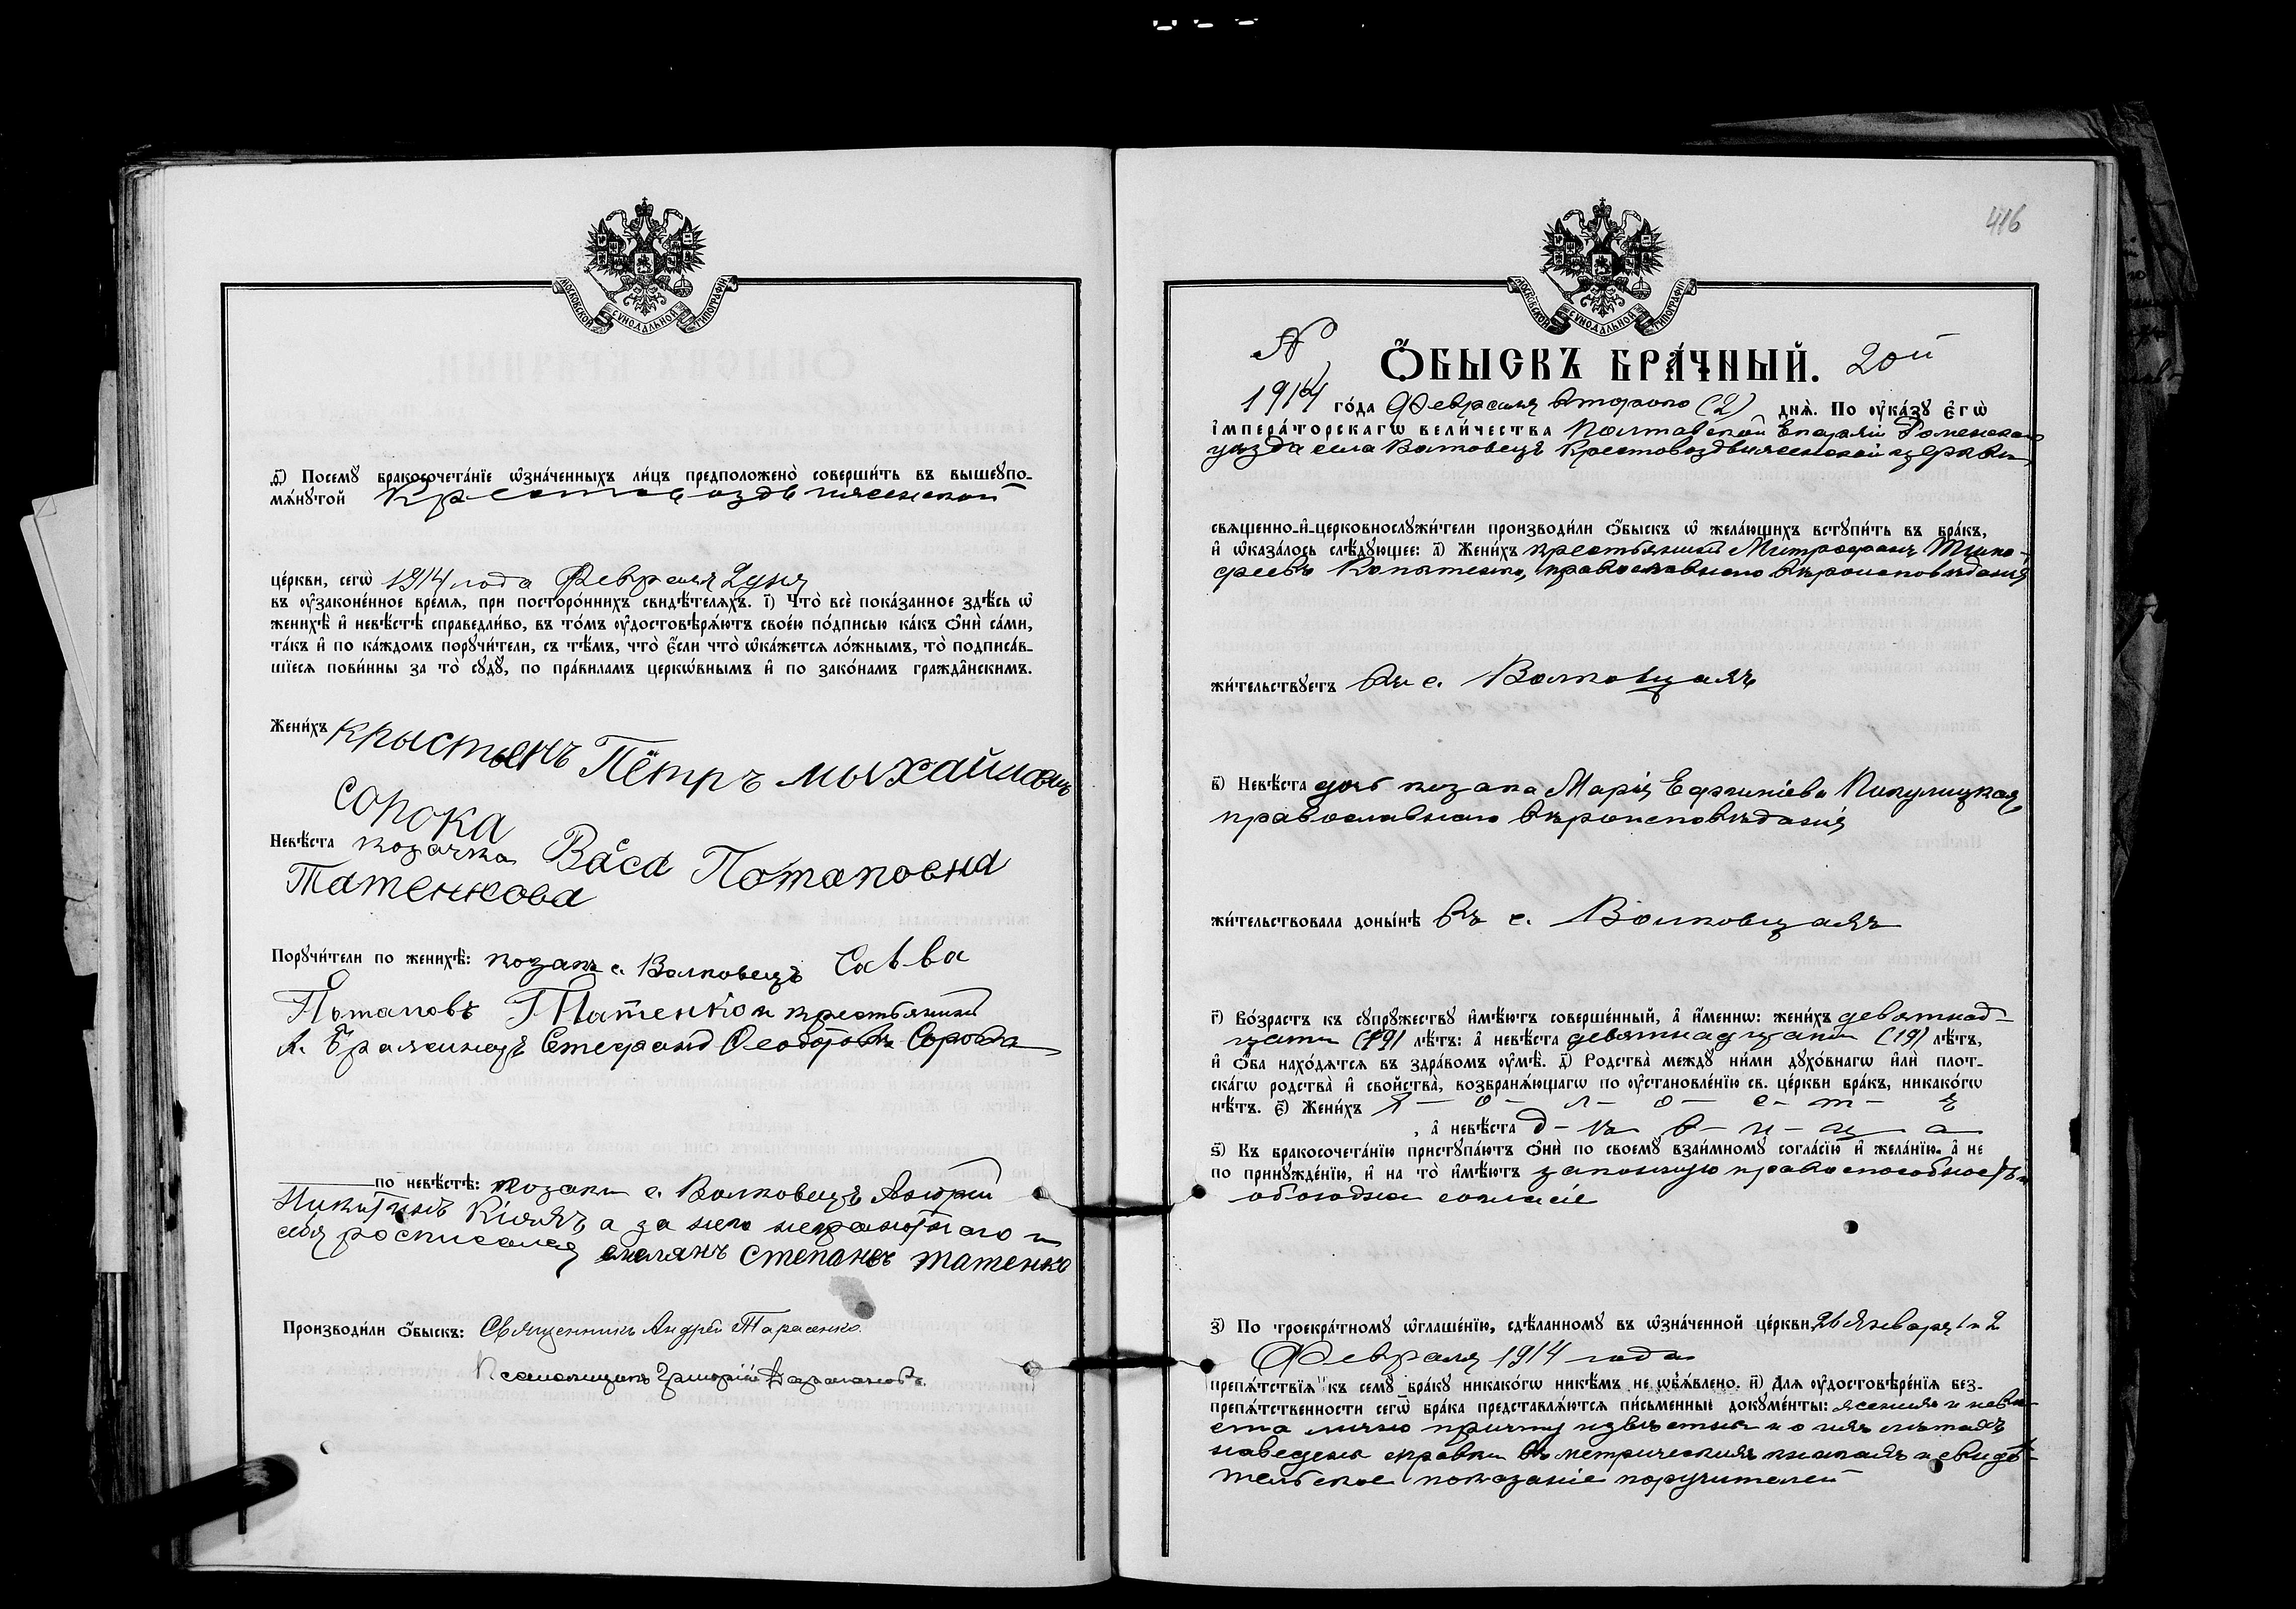 МОСКОВСКОЙ СѴНОДАЛЬНОЙ ТИПОГРАФІИ
ѳ҃) Посемꙋ̀ бракосочета́нїе ѡ҆зна́ченныхъ ли́цъ предположено̀ соверши́ть въ вышеꙋпо-
мѧ́нꙋтой Крестовоздвиженской
це́ркви, сегѡ̀ 1914 года Февраля 2 дня
въ ᲂу҆зако́ненное вре́мѧ, при посторо́ннихъ свидѣ́телѧхъ. і҃) Что̀ всѐ пока́занное здѣ́сь ѡ҆
женихѣ̀ и҆ невѣ́стѣ справедли́во, въ то́мъ ᲂу҆достовѣрѧ́ютъ свое́ю по́дписью ка́къ ѻ҆нѝ са́ми,
та́къ и҆ по ка́ждомъ порꙋчи́тели, съ тѣ́мъ, что̀ є҆́сли что̀ ѡ҆ка́жетсѧ ло́жнымъ, то̀ подписа́в-
шїесѧ пови́нны за то̀ сꙋдꙋ̀, по пра́виламъ церкѡ́внымъ и҆ по зако́намъ гражда̑нскимъ.
Жени́хъ крыстьенъ Пётръ мыхайловичъ
сорока
Невѣ́ста козачка Васа Потаповна
Татенкова
Порꙋчи́тели по женихѣ̀: козакъ с. Волковецъ Савва
Потаповъ Татенко и крестьянинъ
Стефанъ Сорока
по невѣ́стѣ: козаки с. Волковецъ
Никитинъ а за него неграмотнаго и
себя росписался Степанъ татенко
Производи́ли ѻ҆́быскъ: Священникъ Андрей Тарасенко.
Псаломщикъ Григорій
416
МОСКОВСКОЙ СѴНОДАЛЬНОЙ ТИПОГРАФІИ
№ Ѻ҆́БЫСКЪ БРА́ЧНЫЙ. 20й
1914 го́да Февраля второго (2) днѧ̀. По ᲂу҆ка́зꙋ є҆гѡ̀
і҆мпера́торскагѡ вели́чества Полтавской Епархіи Роменскаго
уѣзда села Волковецъ Крестовоздвиженской церкви
свѧщенно-и҆-церковнослꙋжи́тели производи́ли ѻ҆́быскъ ѡ҆ жела́ющихъ встꙋпи́ть въ бра́къ,
и҆ ѡ҆каза́лось слѣ́дꙋющее: а҃) Жени́хъ крестьянинъ Митрофанъ Тимо-
феевъ православнаго вѣроисповѣданія
жи́тельствꙋетъ въ с. Волковцахъ
в҃) Невѣ́ста дочь козака Марія
православнаго вѣроисповѣданія
жи́тельствовала доны́нѣ въ с. Волковцахъ
г҃) Во́зрастъ къ сꙋпрꙋ́жествꙋ и҆мѣ́ютъ соверше́нный, а҆ и҆́менно: жени́хъ девятнад-
цати (19) лѣ́тъ: а҆ невѣ́ста девятнадцати (19) лѣ́тъ,
и҆ ѻ҆́ба нахо́дѧтсѧ въ здра́вомъ ᲂу҆мѣ̀. д҃) Родства̀ междꙋ ни́ми дꙋхо́внагѡ и҆лѝ плот-
ска́гѡ родства̀ и҆ свойства̀, возбранѧ́ющагѡ по ᲂу҆становле́нїю св. це́ркви бра́къ, никако́гѡ
нѣ́тъ. є҃) Жени́хъ х - о - л - о - с - т - ъ
, а҆ невѣ́ста д - ѣ - в - и - ц - а
ѕ҃) Къ бракосочета́нїю пристꙋпа́ютъ ѻ҆нѝ по своемꙋ̀ взаи́мномꙋ согла́сїю и҆ жела́нїю, а҆ не
по принꙋжде́нїю, и҆ на то̀ и҆мѣ́ютъ законную правоспособность и
обоюдное согласіе
з҃) По троекра́тномꙋ ѡ҆глаше́нїю, сдѣ́ланномꙋ въ ѡ҆зна́ченной це́ркви 26 Января 1 и 2
Февраля 1914 года
препѧ́тствїѧ къ семꙋ̀ бра́кꙋ никако́гѡ никѣ́мъ не ѡ҆б̾ѧ́влено. и҃) Для ᲂу҆достовѣре́нїѧ без-
препѧ́тственности сегѡ̀ бра́ка представлѧ́ютсѧ пи́сьменные докꙋме́нты: женихъ и невѣ-
ста лично причту извѣстны и о ихъ лѣтахъ
наведены справки въ метрическихъ книгахъ и свидѣ-
тельское показаніе поручителей